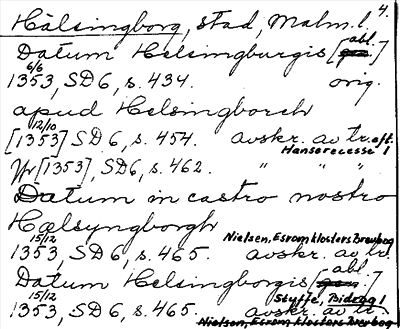 4.
Hälsingborg, stad, Malm. l.
Datum Helsingburgis [abl.]
6/6
1353, SD 6, s. 434. orig.
apud Helsingborch
12/10
[1353] SD 6, s. 454. avskr. av tr. eft. Hanserecesse 1
Jfr [1353], SD 6, s. 462. " " "
Datum in castro nostro
Hælsyngborgh
15/12 Nielsen, Esromklosters Brevbog
1353, SD 6, s. 465. avskr. av tr.
Datum Helsingborgis [abl.]
15/12 Styffe, Bidrag 1
1353, SD 6, s. 465. avskr. av tr.
Nielsen, Esromklosters Brevbog